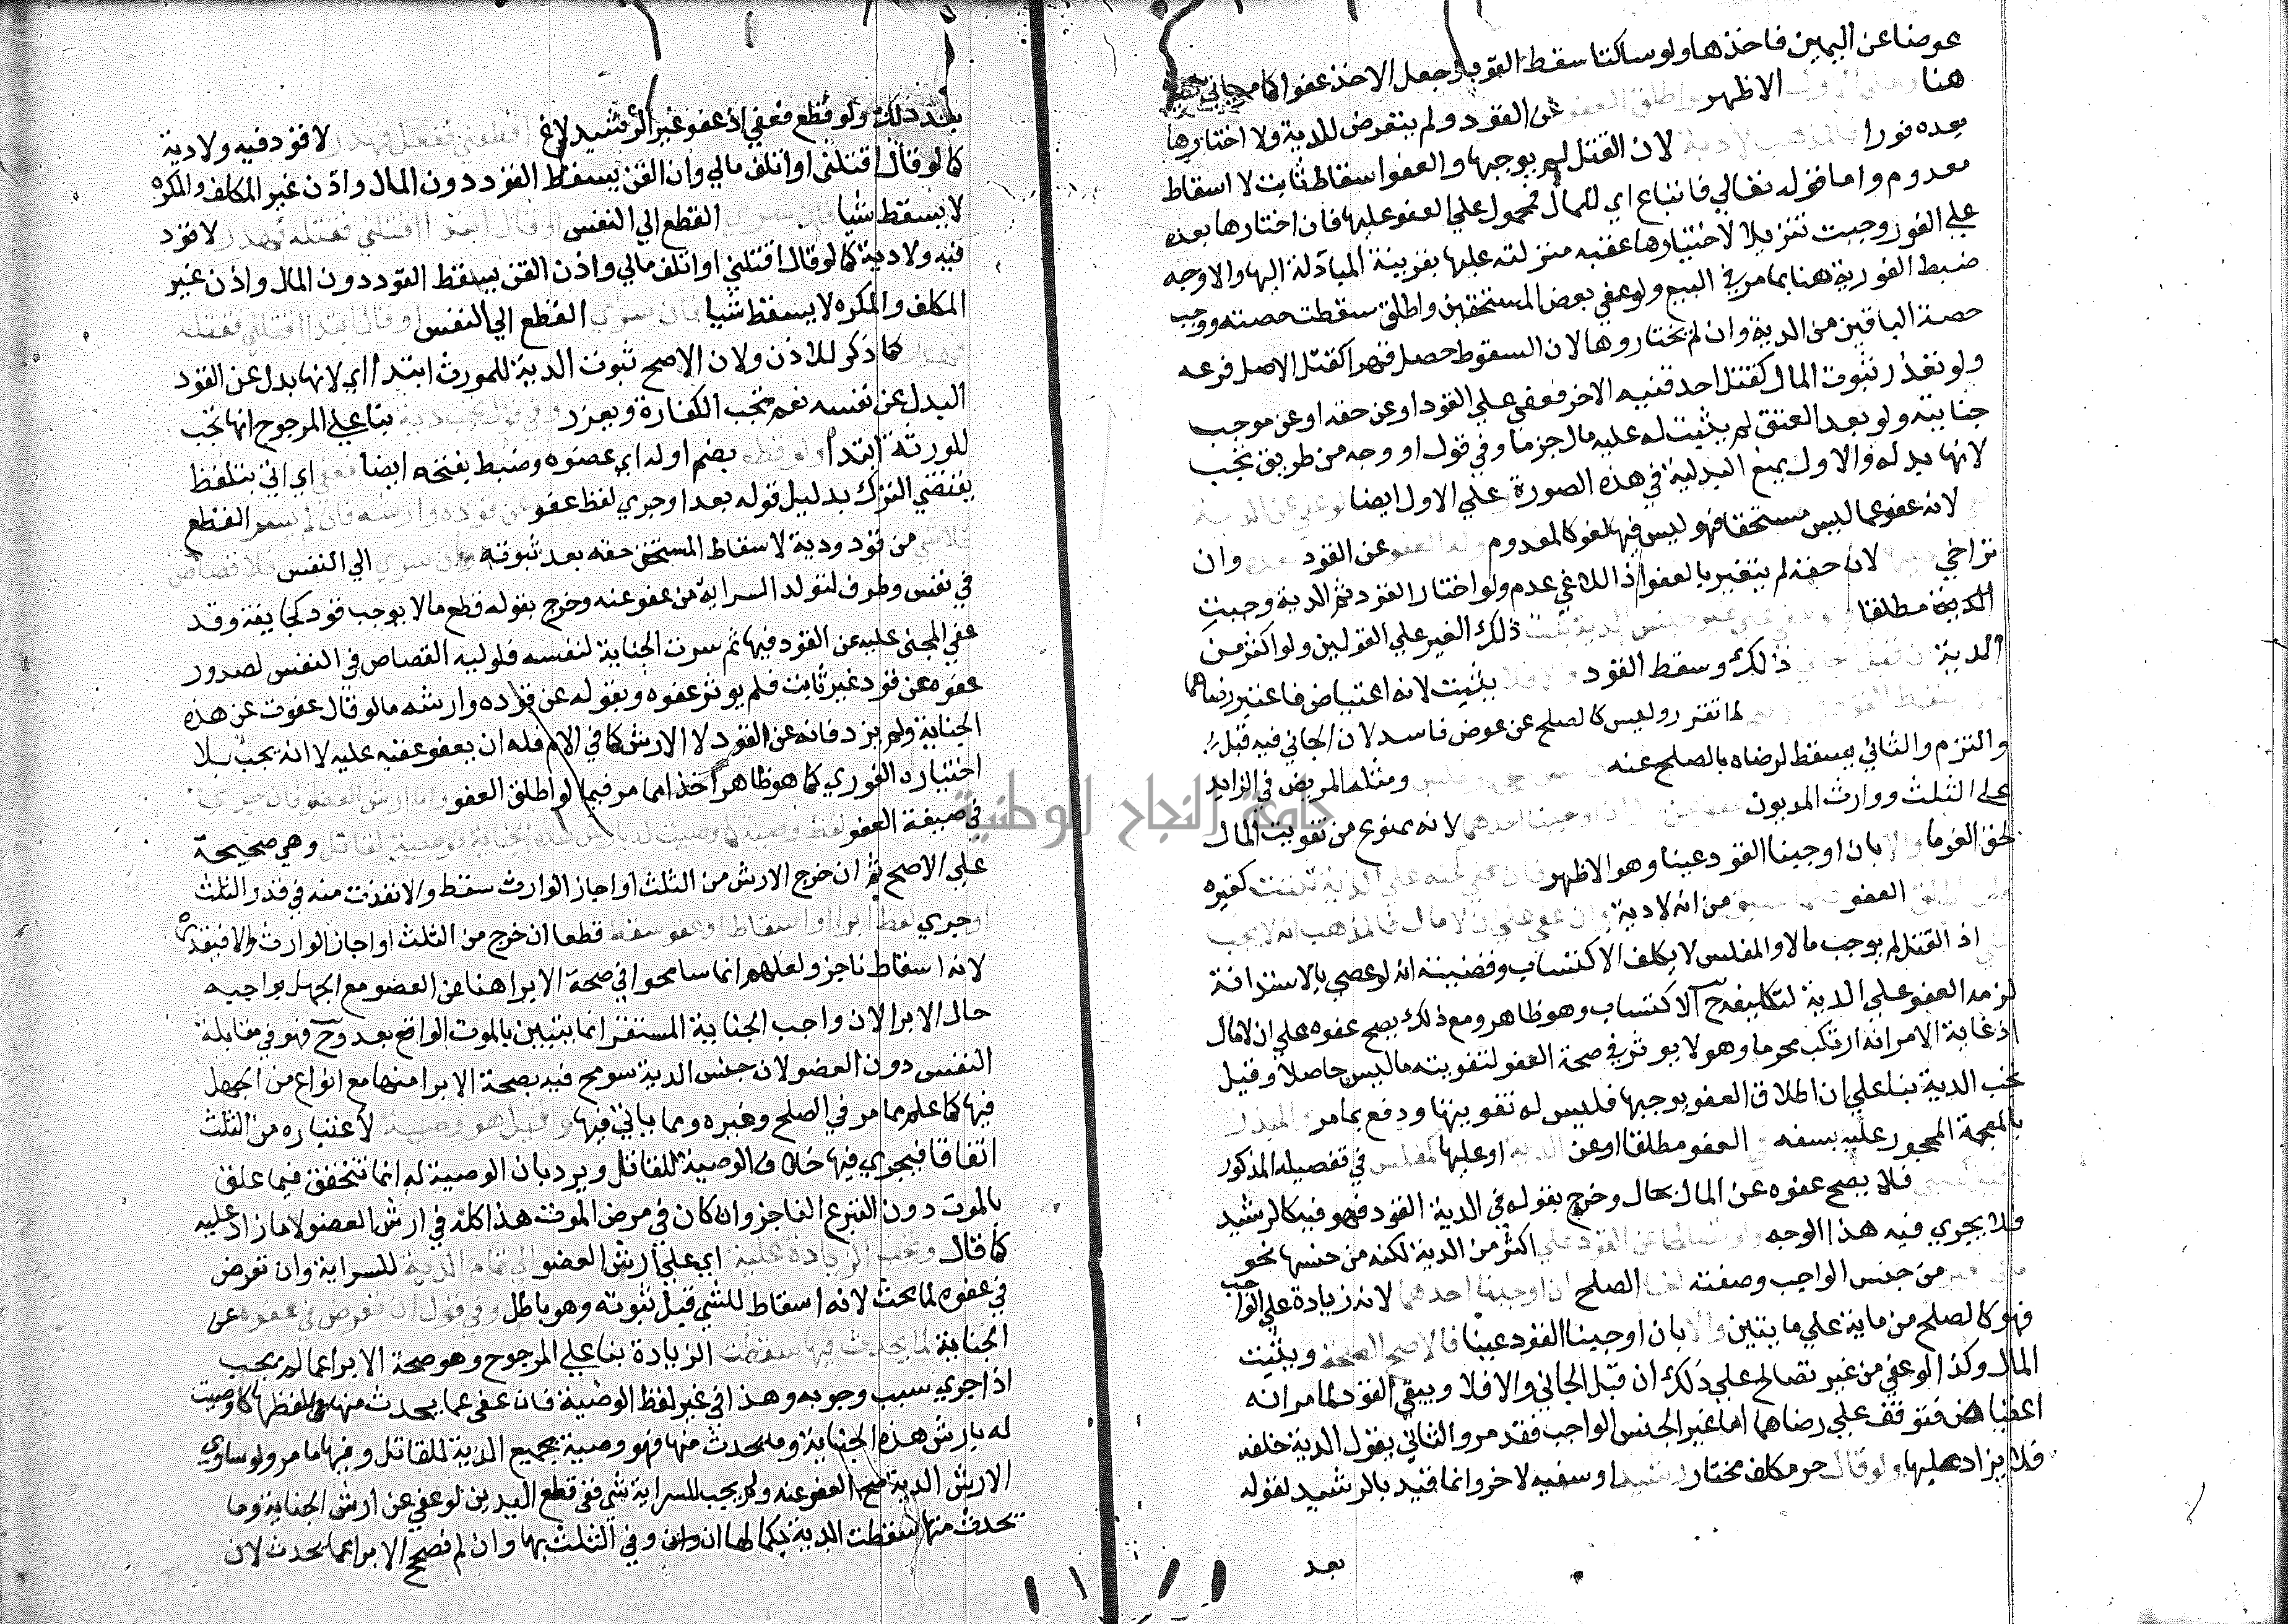 عوضا عن اليمين فاخذها ولو ساكتا سقط القود وجعل الاخذ عفوا كما مجاني
هنا الاظهر واطلق العفو عن القود ولم يتعرض للدية ولا اختارها
بعده فورا فالمذهب لا دية لان القتل لم يوجبها والعفو اسقاط ثابت لا اسقاط
معدوم واما قوله تعالي فاتباع اي للمال فمحمول علي العفو عليها فان اختارها بعده
علي الفور وجبت تنزيلا لاختيارها عقبه منزلته عليها بقرينة المبادلة اليها والاوجه
ضبط الفورية هنا بما مر في البيع ولو عفي بعض المستحقين واطلق سقطت حصته ووجب
حصة الباقين من الدية وان لم يختاروها لان السقوط حصل قهرا كقتل الاصل فرعه
ولو تعذر ثبوت المال كقتل احد قنيه الاخر فعفي علي القود او عن حقه او عن موجب
جنايته ولو بعد العتق لم يثبت له عليه مال جزما وفي قول او وجه من طريق تجب
لانها بدله والاول يمنع البدلية في هذه الصورة وعلي الاول ايضا لو عفي عن الدية
لانه عفو عما ليس مستحقا فهو ليس فيها لغو كالمعدوم وله العفو عن القود بعده وان
تراخي لان حقه لم يتغير بالعفو اذ اللاغي عدم ولو اختار القود ثم الدية وجبت
الدية مطلقا ولو عفي علي غير جنس الدية ثبت ذلك الغير علي القولين ولو اكثر من
الدية ان قبل الجاني ذلك وسقط القود والا فلا يثبت لانه اعتياض فاعتبر رضاهما
لما تقرر وليس كالصلح عن عوض فاسد لان الجاني فيه قبل
والتزم والثاني يسقط لرضاه بالصلح عنه ومثله المريض في الزايد
علي الثلث ووارث المديون ان اوجبنا احدهما لانه ممنوع من تفويت المال
لحق الغرما والا بان اوجبنا القود عينا وهو الاظهر فان عفي عنه علي الدية ثبتت كغيره
العفو من انه لا دية وان عفي علي ان لا مال فالمذهب انه لا يجب
شي اذ القتل لم يوجب مالا والمفلس لا يكلف الاكتساب وقضيته انه لو عصي بالاستدانة
لزمه العفو علي الدية لتكليفه ح الاكتساب وهو ظاهر ومع ذلك يصح عفوه علي ان لا مال
اذ غاية الامر انه ارتكب محرما وهو لا يوثر في صحة العفو لتفويته ما ليس حاصلا وقيل
تجب الدية بنا علي ان اطلاق العفو يوجبها فليس له تفويتها ودفع بما مر المبذر
بالمعجمة المحجور عليه بسفه في العفو مطلقا او عن الدية او عليها كمفلس في تفصيله المذكور
فلا يصح عفوه عن المال بحال وخرج بقوله في الدية القود فهو فيه كالرشيد
فلا يجري فيه هذا الوجه ولو تصالحا عن القود علي اكثر من الدية لكنه من جنسها نحو
من جنس الواجب وصفته لغا الصلح ان اوجبنا احدهما لانه زيادة علي الواجب
فهو كالصلح من ماية علي مايتين والا بان اوجبنا القود عينا فالاصح الصحة ويثبت
المال وكذا لو عفي من غير تصالح علي ذلك ان قبل الجاني والا فلا ويبقي القود لما مر انه
اعتياض فتوقف علي رضاهما اما غير الجنس الواجب فقد مر والثاني يقول الدية خلفه
فلا يزاد عليها ولو قال حر مكلف مختار رشيد او سفيه لاخر وانما قيد بالرشيد لقوله
بعد
بعد ذلك ولو قطع فعفي اذ عفو غير الرشيد لاغ اقطعني ففعل فهدر لا قود فيه ولا دية
كما لو قال اقتلني او اتلف مالي وان القن يسقط القود دون المال واذن غير المكلف والمكره
لا يسقط شيا فان سري القطع الي النفس او قال ابتدا اقتلني فقتله فهدر لا قود
فيه ولا دية كما لو قال اقتلني او اتلف مالي واذن القن يسقط القود دون المال واذن غير
المكلف والمكره لا يسقط شيا فان سري القطع الي النفس او قال ابتدا اقتلني فقتله
فهدر كما ذكر للاذن ولان الاصح ثبوت الدية للمورث ابتدا اي لانها بدل عن القود
البدل عن نفسه نعم تجب الكفارة ويعزر وفي قول تجب دية بنا علي المرجوح انها تجب
للورثة ابتدا ولو قطع بضم اوله اي عضوه وضبط بفتحه ايضا فعفي اي اتي بتلفظ
يقتضي الترك بدليل قوله بعد او جري لفظ عفو عن قوده وارشه فان لم يسر القطع
فلا شي من قود ودية لاسقاط المستحق حقه بعد ثبوته وان سري الي النفس فلا قصاص
في نفس وطرف لتولد السراية من عفو عنه وخرج بقوله قطع ما لا يوجب قود كجايفة وقد
عفي المجني عليه عن القود فيها ثم سرت الجناية لنفسه فلوليه القصاص في النفس لصدور
عفوه عن قود غير ثابت فلم يوثر عفوه وبقوله عن قوده وارشه ما لو قال عفوت عن هذه
الجناية ولم يزد فانه عن القود لا الارش كما في الام فله ان يعفو عقبه عليه لا انه يجب بلا
اختياره الفوري كما هو ظاهر اخذا مما مر فيما لو اطلق العفو واما ارش العضو فان جري
في صيغة العفو لفظ وصية كاوصيت له بارش هذه الجناية فوصية لقاتل وهي صحيحة
علي الاصح ثم ان خرج الارش من الثلث او اجاز الوارث سقط والا نفذت منه في قدر الثلث
او جري لفظ ابرا او اسقاط او عفو سقط قطعا ان خرج من الثلث او اجاز الوارث والا فبقدره
لانه اسقاط ناجز ولعلهم انما سامحوا في صحة الابرا هنا عن العضو مع الجهل بواجبه
حال الابرا لان واجب الجناية المستقر انما يتبين بالموت الواقع بعد وح فهو في مقابلة
النفس دون العضو لان جنس الدية سومح فيه بصحة الابرا منها مع انواع من الجهل
فيها كما علم مما مر في الصلح وغيره ومما ياتي فيها وقيل هو وصية لاعتباره من الثلث
اتفاقا فيجري فيها خلاف الوصية للقاتل ويرد بان الوصية له انما تتحقق فيما علق
بالموت دون التبرع الناجز وان كان في مرض الموت هذا كله في ارش العضو لا ما زاد عليه
كما قال وتجب الزيادة عليه اي علي ارش العضو الي تمام الدية للسراية وان تعرض
في عفوه لما يحدث لانه اسقاط للشي قبل ثبوته وهو باطل وفي قول ان تعرض في عفوه عن
الجناية لما يحدث فيها سقطت الزيادة بنا علي المرجوح وهو صحة الابرا عما لم يجب
اذا جري سبب وجوبه وهذا في غير لفظ الوصية فان عفي عما يحدث منها بلفظها كاوصيت
له بارش هذه الجناية وما يحدث منها فهو وصية بجميع الدية للقاتل وفيها ما مر ولو ساوي
الارش الدية صح العفو عنه ولم يجب للسراية شي ففي قطع اليدين لو عفي عن ارش الجناية وما
يحدث منها سقطت الدية بكمالها ان وفي الثلث بها وان لم نصحح الابرا عما يحدث لان
جامعة النجاح الوطنية